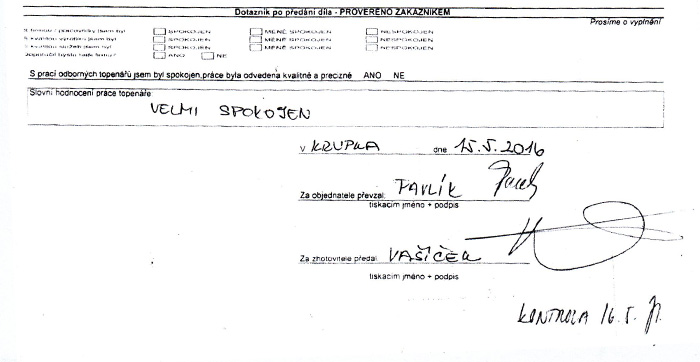 Dotazník po předání díla - PROVERENO ZAKAZNIKEM
Prosíme o vyplnění
jsem byl SPOKOJEN MÉNĚ SPOKOJEN NESPOKOJEN
S kvalitou výrobku jsem byl SPOKOJEN MÉNĚ SPOKOJEN NESPOKOJEN
S kvalitou služeb jsem byl SPOKOJEN MÉNĚ SPOKOJEN NESPOKOJEN
Doporučil byste naši firmu? ANO NE
S prací odborných topenářů jsem byl spokojen,práce byla odvedena kvalitně a precizně ANO NE
Slovní hodnocení práce topenáře:
VELMI SPOKOJEN
v KRUPKA dne 15.5.2016
Za objednatele převzal: PAVLÍK
tiskacím jméno + podpis
Za zhotovitele předal: VAŠÍČEK
tiskacím jméno + podpis
KONTROLA 16.5.